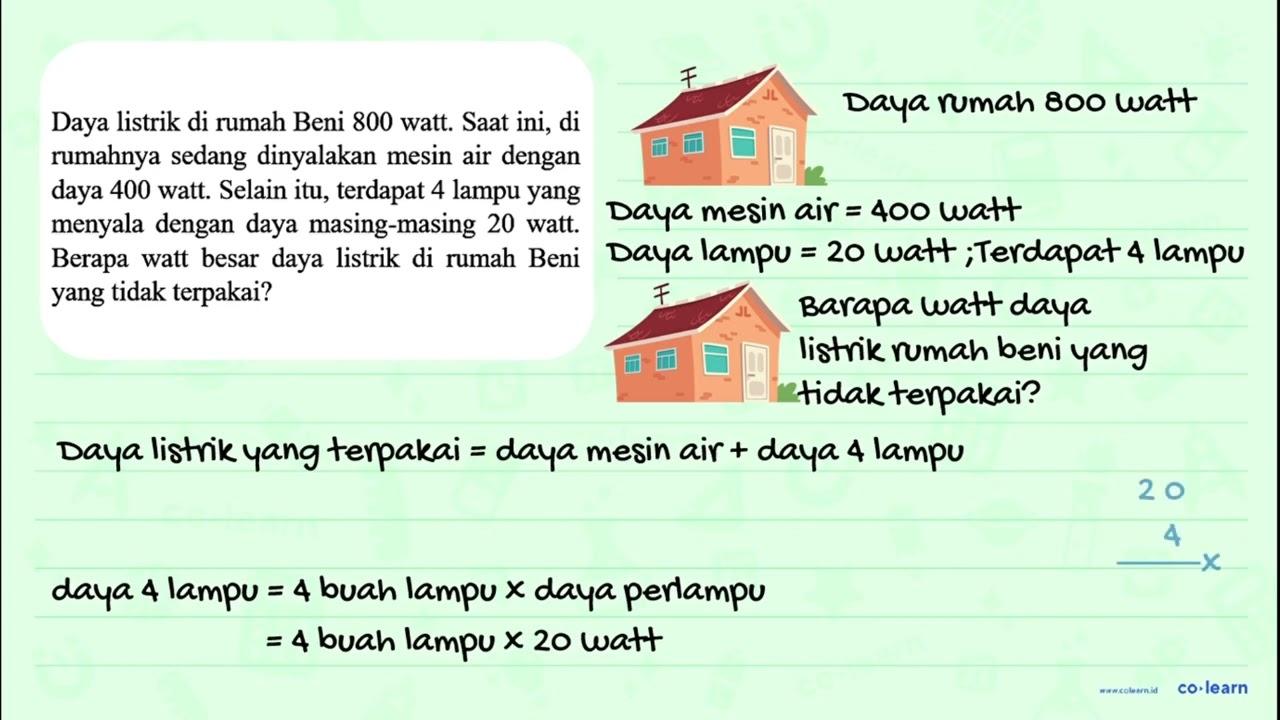 Daya listrik di rumah Beni 800 watt. Saat ini, di
rumahnya sedang dinyalakan mesin air dengan
daya 400 watt. Selain itu, terdapat 4 lampu yang
menyala dengan daya masing-masing 20 watt.
Berapa watt besar daya listrik di rumah Beni
yang tidak terpakai?
Daya rumah 800 watt
Daya mesin air = 400 watt
Daya lampu = 20 watt ; Terdapat 4 lampu
Barapa watt daya
listrik rumah beni yang
tidak terpakai?
Daya listrik yang terpakai = daya mesin air + daya 4 lampu
20
4
x
daya 4 lampu = 4 buah lampu x daya perlampu
= 4 buah lampu x 20 watt
www.colearn.id
co·learn